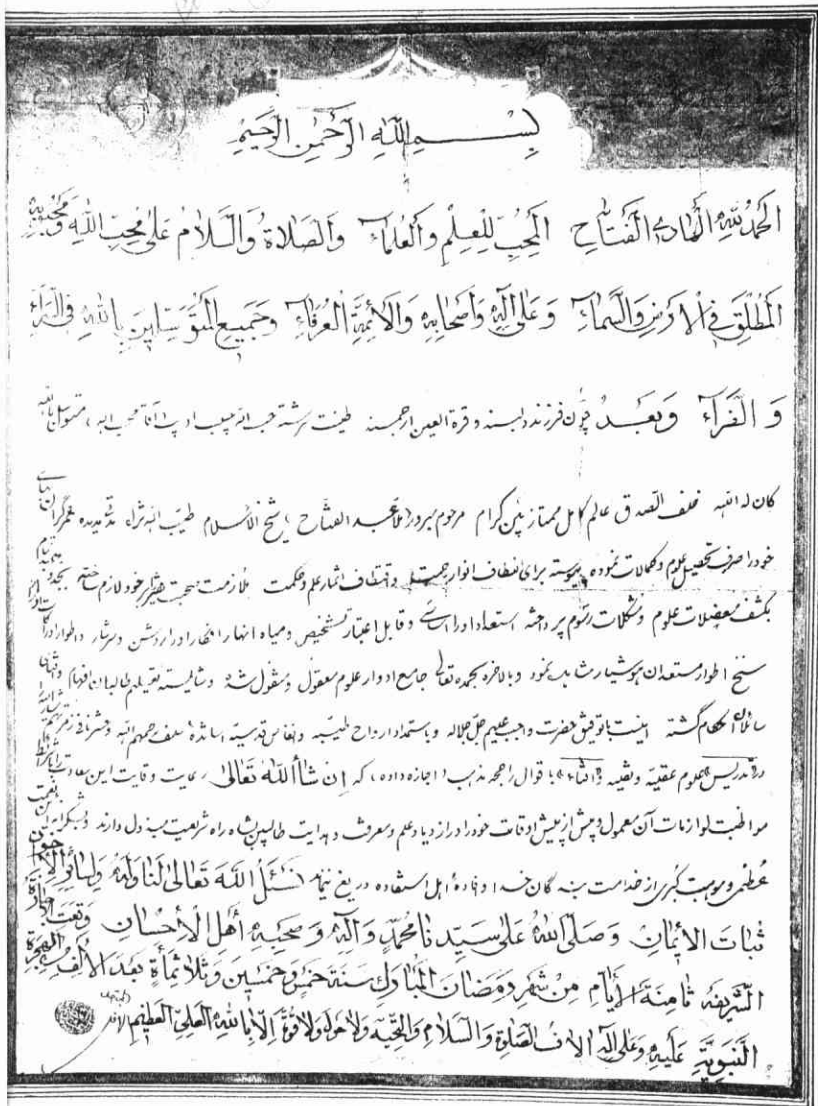 بِسْمِ اللهِ الرَّحْمٰنِ الرَّحِيمِ
الحمد لله الهادي الفتاح المحب للعلم والعلماء والصلاة والسلام على محب الله ومحبوبه
المطلق في الأرض والسماء وعلى آله وأصحابه والأئمة العرفاء وجميع المتوسلين بالله في السراء
والضراء وبعد چون فرزند دلبند و قرة العین ارجمند طینت سرشته حب الله متوسل بالله
كان له الله خلف الصدق عالم کامل ممتاز بین کرام مرحوم مبرور ملا عبد الفتاح شیخ الاسلام طیب الله ثراه مدت مدیده عمر گران
خود را صرف تحصیل علوم و کمالات نموده پیوسته برای اقتطاف انوار و اقتطاف اثمار علم و حکمت ملازمت صحبت خود لازم ساخته
بکشف معضلات علوم و مشکلات رسوم پرداخته استعداد اورا و قابل اعتبار تشخیص ومیاه انهار افکار اورا روشن وسرشار واطوار اورا
سنخ اطوار مستعدان هوشیار مشاهده نمود وبالاخره بحمده تعالى جامع ادوار علوم معقول ومنقول شده وشایسته تعلیم طالبان
گشته اینست باتوفیق حضرت واجب علیم جل جلاله وباستمداد ارواح طیبه وانفاس قدسیه اساتذه سلف رحمهم الله
در تدریس علوم عقلیه ونقلیه با قوال راجحه مذهب اجازه داده، که إن شاء الله تعالى رعایت وقایت این
مواظبت لوازمات آن معمول و بیش از پیش اوقات خودرا در ازدیاد علم ومعرفت وهدایت طالبین شاه راه شریعت مبذول دارند
عظمی وموهبت کبری از خدامت بنده گان خدا وافاده اهل استفاده دریغ ننماید نسئل الله تعالى لنا وله ولسائر
ثبات الأيمان وصلى الله على سيدنا محمد وآله وصحبه أهل الأحسان وقعت
الشريفة ثامنة الأيام من شهر رمضان المبارك سنة خمس وخمسين وثلاثمأة بعد الألف الهجرة
النبوية عليه وعلى آله آلاف الصلوة والسلام والتحية ولا حول ولا قوة إلا بالله العلي العظيم